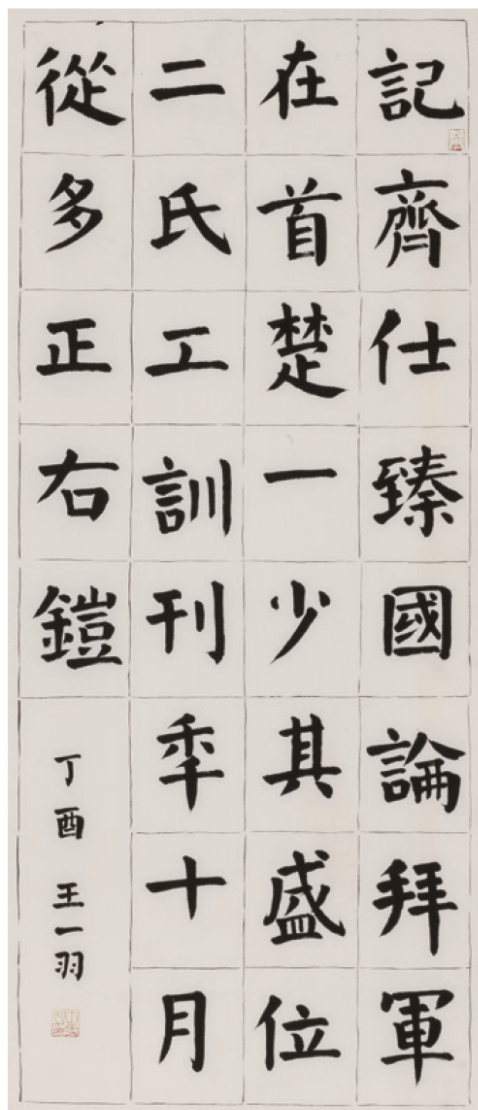 記齊仕臻國論拜軍
在首楚一少其盛位
二氏工訓刊秊十月
從多正右鎧
丁酉 王一羽